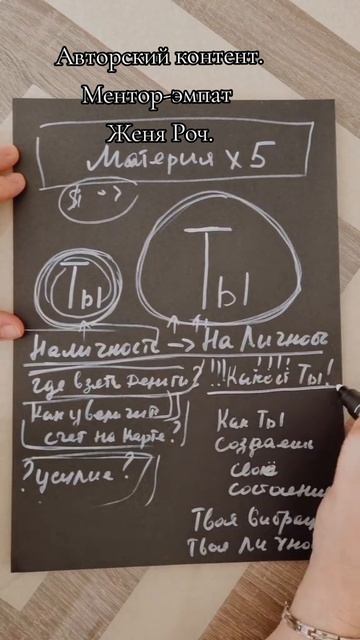 Авторский контент.
Ментор-эмпат
Женя Роч.
Материя x 5
Ты
Ты
Наличность → На Личность
где взять деньги?
!!! Какой Ты!
Как увеличить
счет на карте?
? усилие?
Как Ты
создаешь
своё
состояние
Твоя вибрац
Твоя Личнос